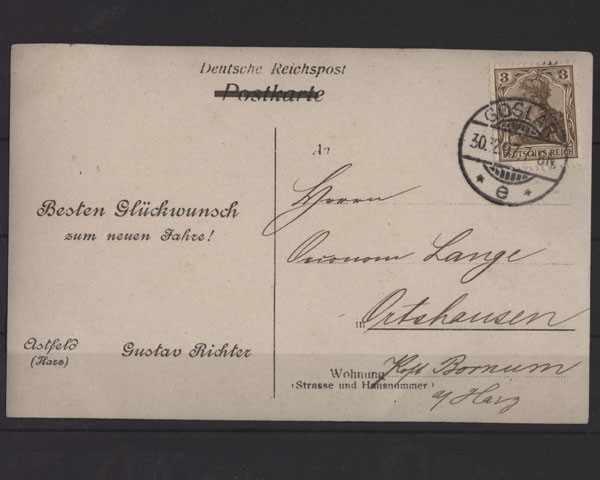 Deutsche Reichspost
Postkarte
3 3
DEUTSCHES REICH
GOSLAR
30.12.07
7-8N.
* e *
An
Herrn
Oeconom Lange
in Ortshausen
Wohnung Post Bornum
(Strasse und Hausnummer)
a/Harz
Besten Glückwunsch
zum neuen Jahre!
Astfeld
(Harz)
Gustav Richter